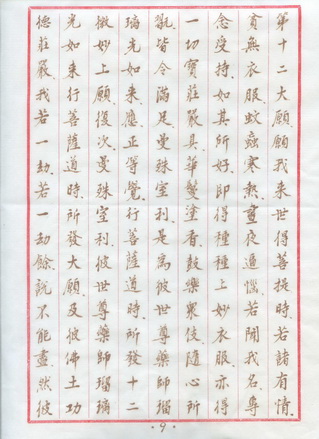 第十二大願願我來世得菩提時若諸有情
貧無衣服蚊蟲寒熱晝夜逼惱若聞我名專
念受持如其所好即得種種上妙衣服亦得
一切寶莊嚴具華鬘塗香鼓樂眾伎隨心所
翫皆令滿足曼殊室利是為彼世尊藥師瑠
璃光如來應正等覺行菩薩道時所發十二
微妙上願復次曼殊室利彼世尊藥師瑠璃
光如來行菩薩道時所發大願及彼佛土功
德莊嚴我若一劫若一劫餘說不能盡然彼
·9·